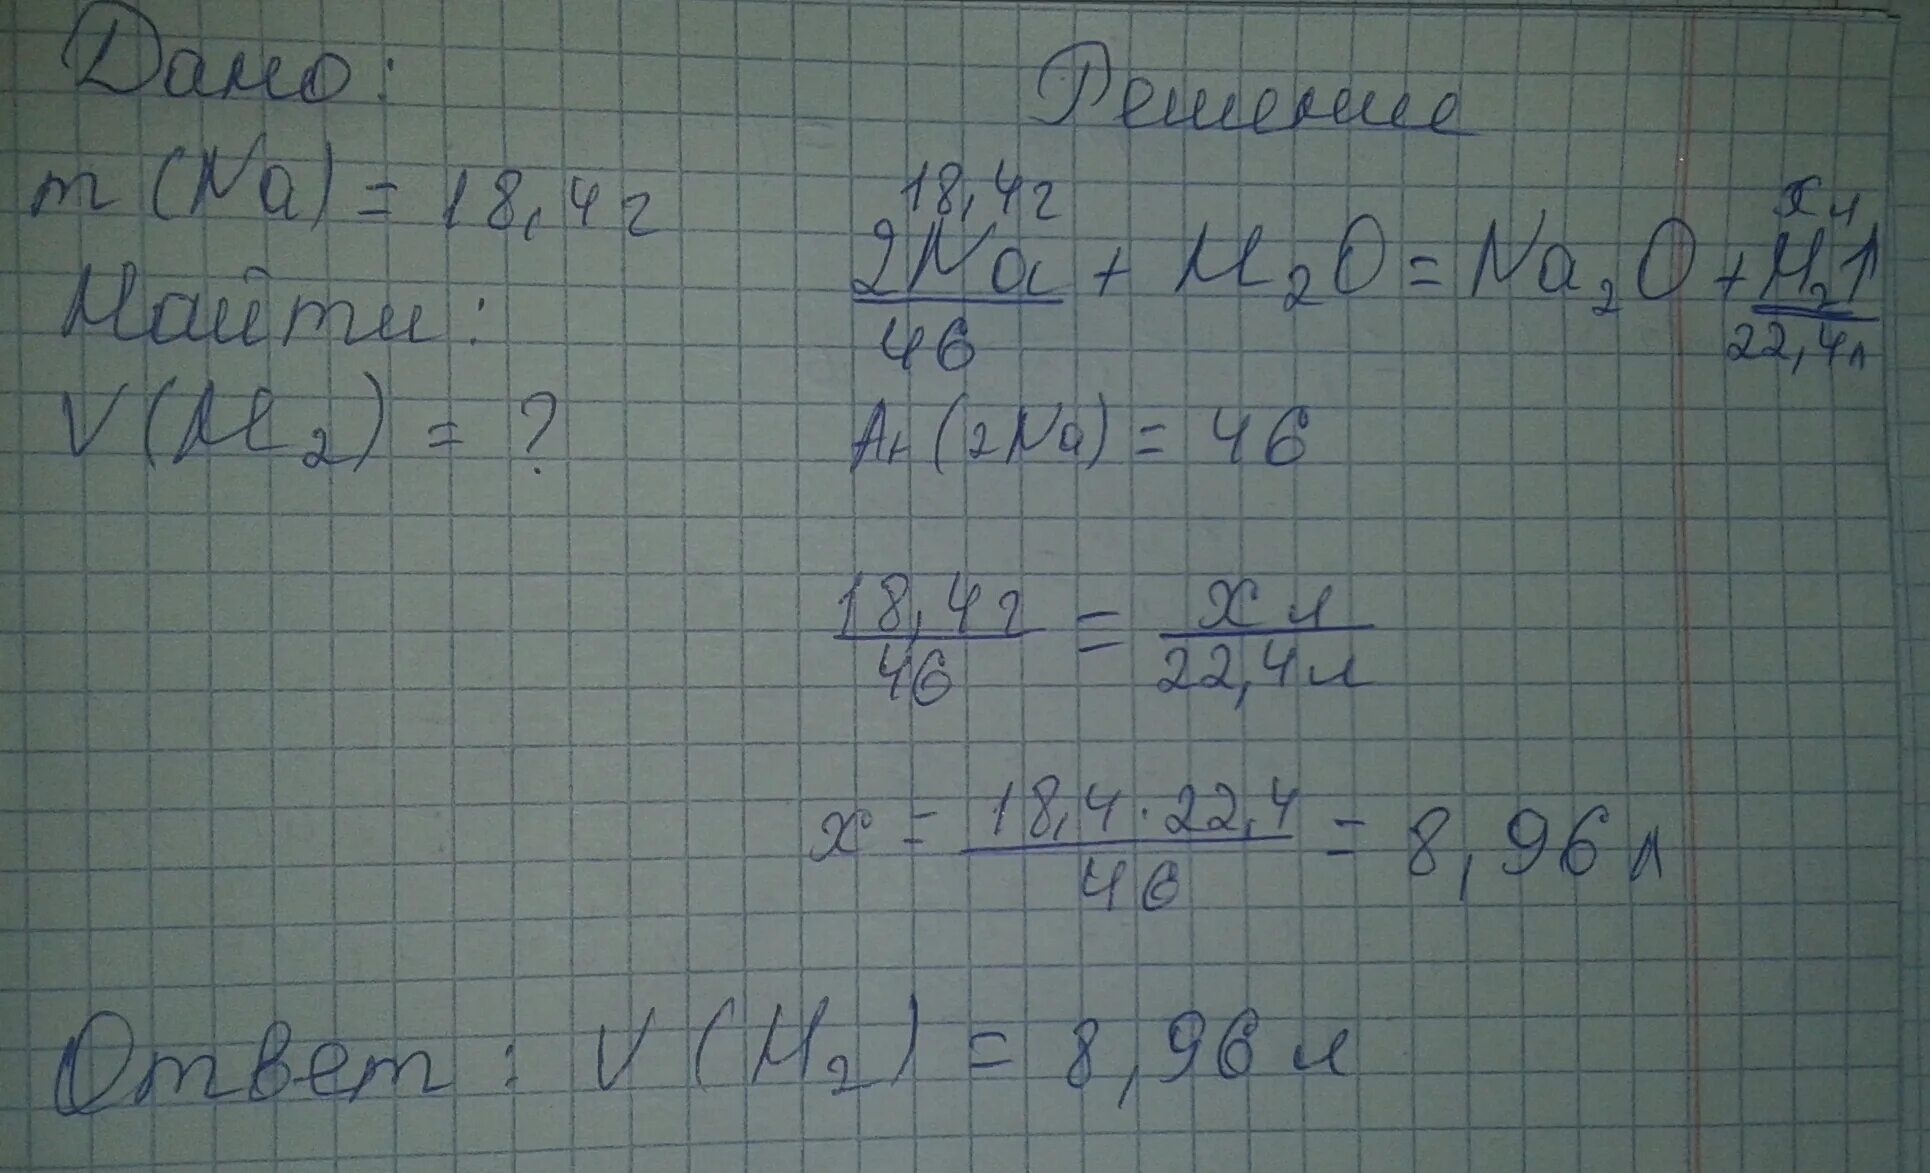 Дано:
m (Na) = 18,4 г
Найти:
V (H₂) = ?
Решение
18,4 г х л
2Na + H₂O = Na₂O + H₂↑
46 22,4 л
Ar (2Na) = 46
18,4 г / 46 = х л / 22,4 л
х = 18,4 · 22,4 / 46 = 8,96 л
Ответ: V (H₂) = 8,96 л